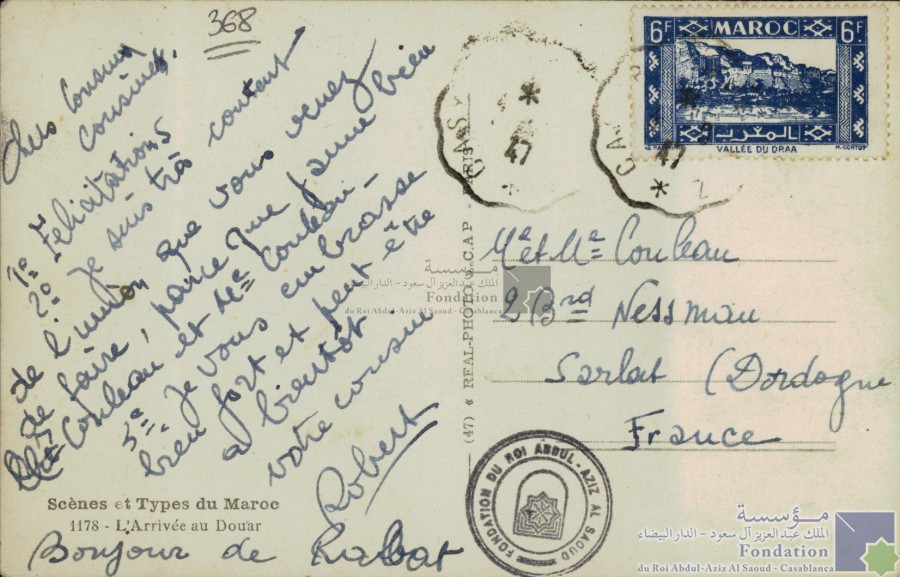 368
Chers Cousin
cousine,
1º Félicitations
2º Je suis très content
de l'union que vous venez
de faire, parce que j'aime bien
Couleau et Me Couleau-
3º Je vous embrasse
bien fort et peut être
a bientôt
votre cousin
Robert
Scènes et Types du Maroc
1178 - L'Arrivée au Douar
Bonjour de Rabat
(47) « REAL-PHOTO » C.A.P - PARIS
* 47
CAS
* 47
6F MAROC 6F
المغرب
VALLÉE DU DRAA
M. CORTOT
Me et Me Couleau
9 Bd Nessmau
Sarlat (Dordogne
France
FONDATION DU ROI ABDUL-AZIZ AL SAOUD
مؤسسة
الملك عبد العزيز آل سعود - الدار البيضاء
Fondation
du Roi Abdul-Aziz Al Saoud - Casablanca
مؤسسة
الملك عبد العزيز آل سعود - الدار البيضاء
Fondation
du Roi Abdul-Aziz Al Saoud - Casablanca